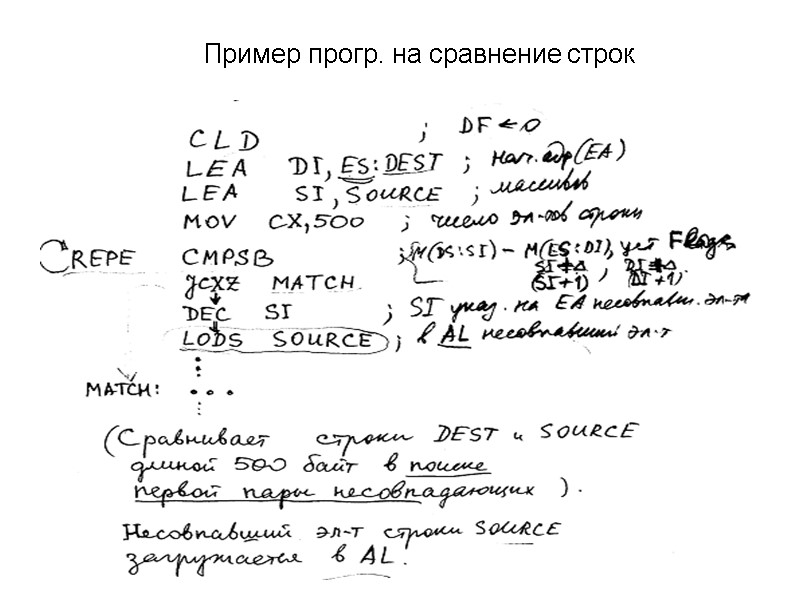 Пример прогр. на сравнение строк
CLD ; DF ← 0
LEA DI, ES:DEST ; нач. адр (EA)
LEA SI, SOURCE ; массивов
MOV CX, 500 ; число эл-тов строки
REPE CMPSB ; M(DS:SI) – M(ES:DI), уст Flags,
SI±Δ, DI±Δ.
(SI+1) (DI+1)
JCXZ MATCH
DEC SI ; SI указ. на EA несовпавш. эл-та
LODS SOURCE ; в AL несовпавший эл-т
MATCH: . . .
(Сравнивает строки DEST и SOURCE
длиной 500 байт в поиске
первой пары несовпадающих).
Несовпавший эл-т строки SOURCE
загружается в AL.